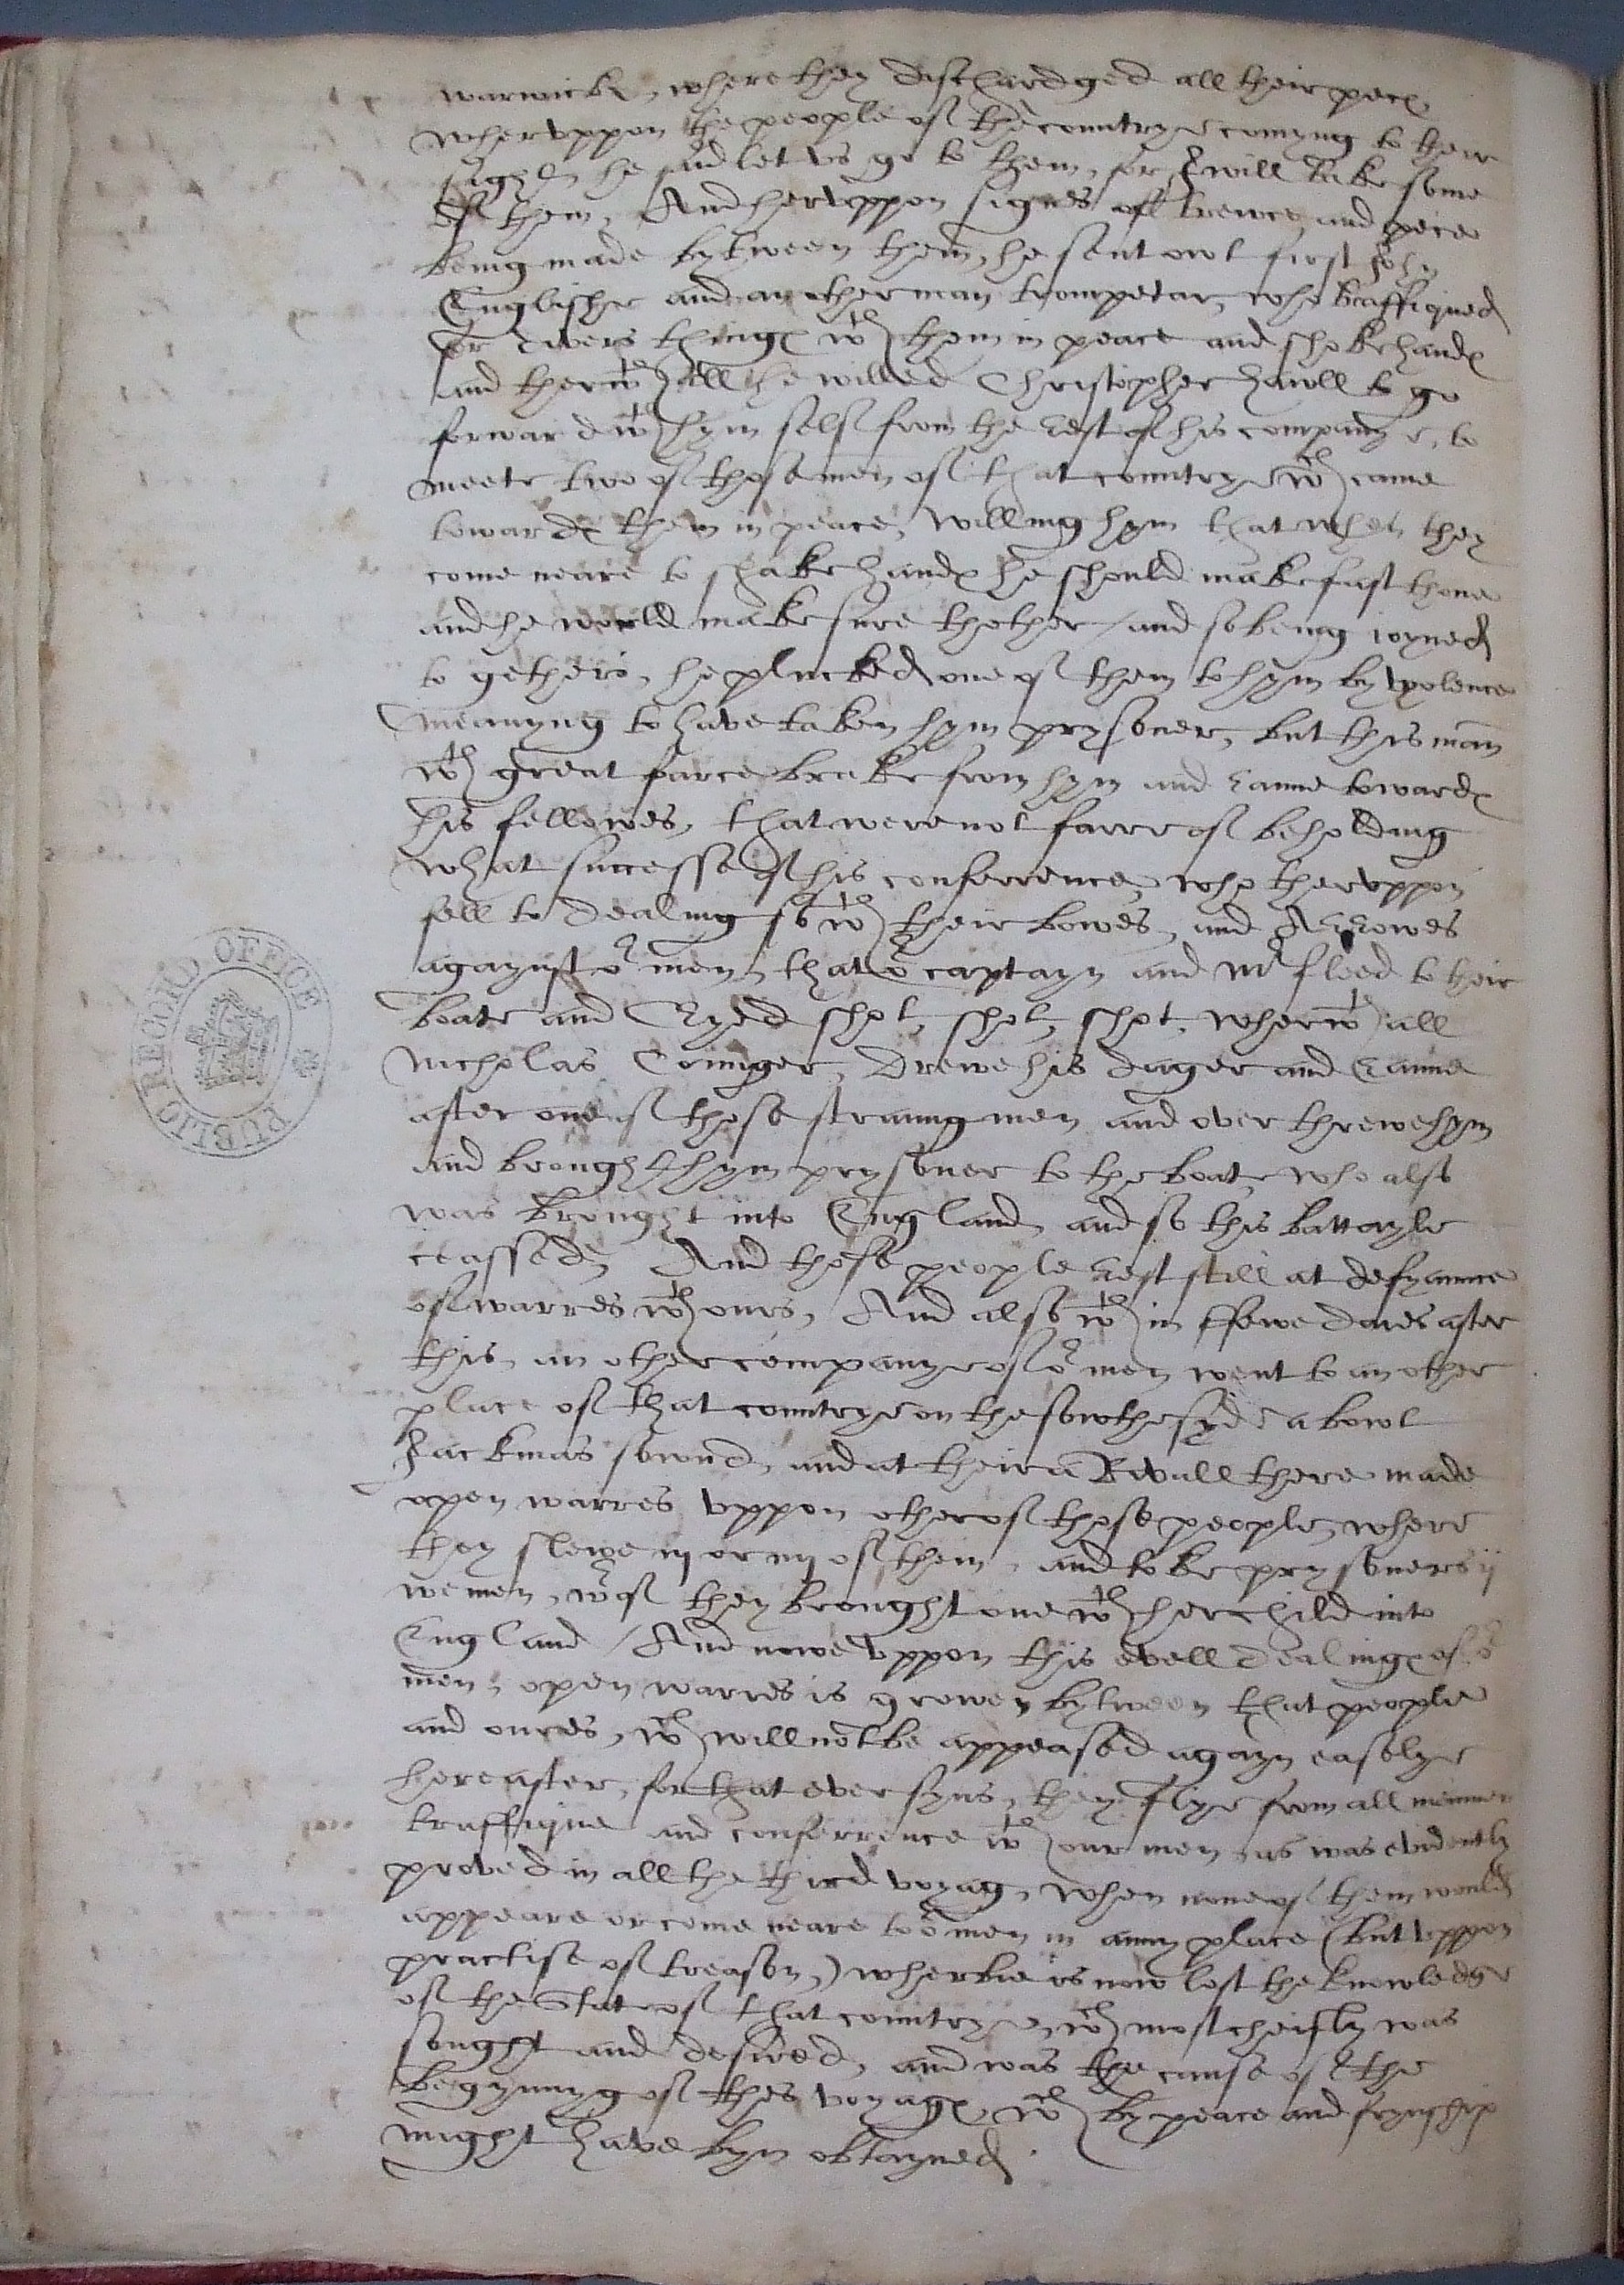 warwick, where they dischardged all their peces
wheruppon the people of the countrye comyng to their
sight, he said let us go to them, for I will take some
of them, And heruppon signes off trewce and pece
being made bytween them, he sent owt first John
Englishe and an other man trompetar, who traffiqued
for divers thinges wth them in peace and shoke handes
and therwthall he willed Christopher Hawll to go
forward wth hym self from the rest of his companye, to
meete two of those men of that countrye wch came
towardes them in peace, willing hym that when they
come neare to shake handes he should make fast thone
and he would make sure thother / and so being ioyned
to gethers, he plucked one of them to hym by vyolence
meanyng to have taken hym prysoner, but this man
wth great force brake from hym and ranne towardes
his fellowes, that were not farre of beholding
what successe of this conferrence, who theruppon
fell to dealing so wth their bowes, and Arrowes
agaynst or men, that or captayn and Mr fleed to their
boate and Cryed shot, shot, shot, wherwthall
Nicholas Counger, Drewe his dager and Ranne
after one of those straung men and over threwe hym
and brought hym prysoner to the boate, who also
was brought into England, and so this battayle
ceassed, And those people rest still at defyannce
of warres wth ours, And also wthin ffewe daies after
this, an other companye of or men went to an other
place of that countrye on the sowthe syde abowt
Jackmas sownd, and at their aRivall there made
open warres uppon other of those people, where
they slewe iij or iiij of them, and toke prysoners ij
wemen, wrof they brought one wth her child into
England / And nowe uppon this evell dealinges of or
men, open warres is growen bytween that people
and oures, wch will not be appeased agayn easelye
hereafter, for that ever syns, they flye from all manner
traffique and conferrence wth our men, as was evidently
proved in all the third voyag, when none of them would
appeare or come neare to or men in anny place (but uppon
practise of treason,) wherbie is now lost the knowledge
of the State of that countrye, wch most cheifly was
sought and desired, and was the cause of the
begynnyng of thes voyages, wch by peace and frynship
might have byn obtayned.
PUBLIC RECORD OFFICE